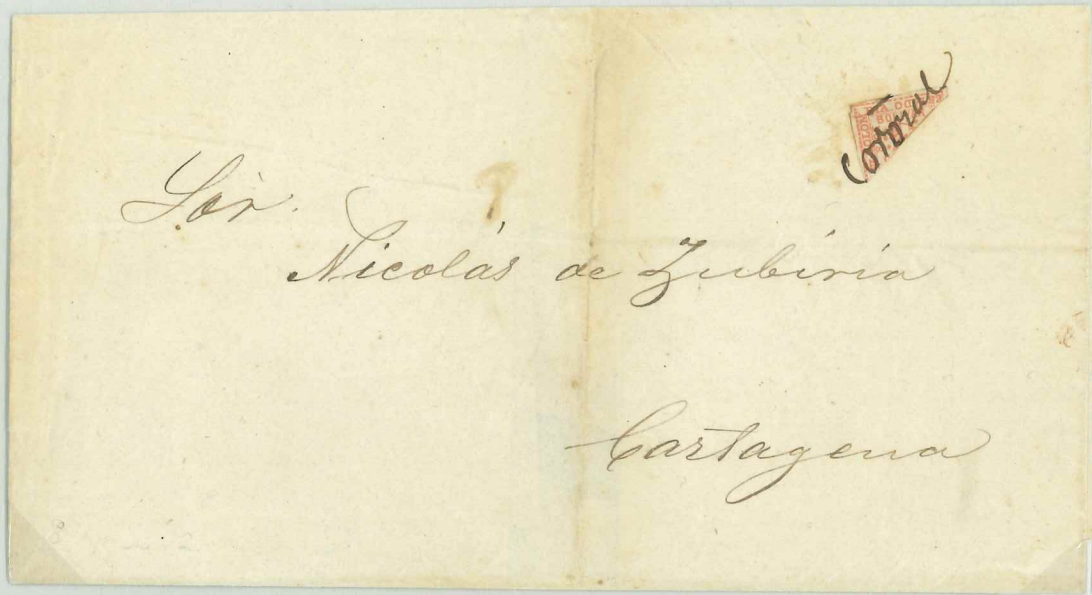 Corozal
Sór.
Nicolás de Zubiria
Cartagena